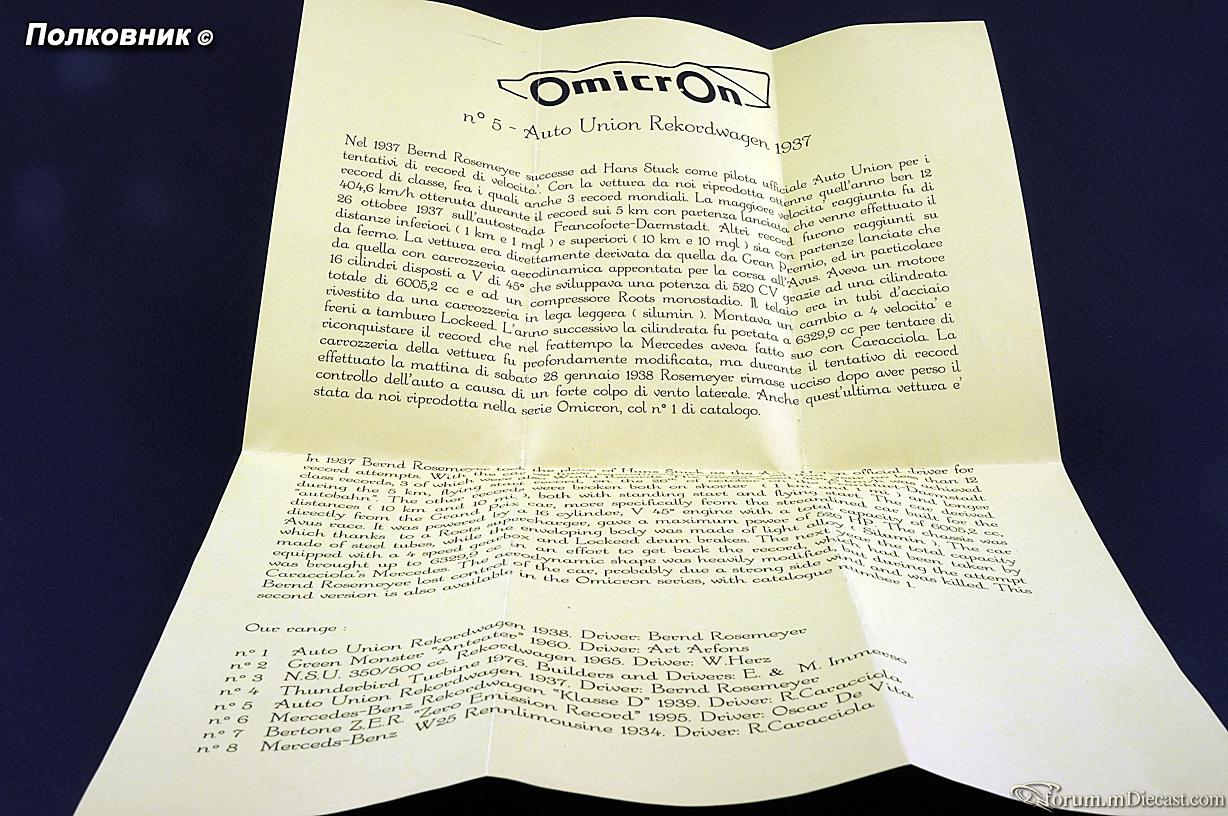 Полковник ©
Omicron
n° 5 - Auto Union Rekordwagen 1937
Nel 1937 Bernd Rosemeyer successe ad Hans Stuck come pilota ufficiale Auto Union per i
tentativi di record di velocita'. Con la vettura da noi riprodotta ottenne quell'anno ben 12
record di classe, fra i quali anche 3 record mondiali. La maggiore velocita' raggiunta fu di
404,6 km/h ottenuta durante il record sui 5 km con partenza lanciata che venne effettuato il
26 ottobre 1937 sull'autostrada Francoforte-Darmstadt. Altri record furono raggiunti su
distanze inferiori ( 1 km e 1 mgl ) e superiori ( 10 km e 10 mgl ) sia con partenze lanciate che
da fermo. La vettura era direttamente derivata da quella da Gran Premio, ed in particolare
da quella con carrozzeria aerodinamica approntata per la corsa all'Avus. Aveva un motore
16 cilindri disposti a V di 45° che sviluppava una potenza di 520 CV grazie ad una cilindrata
totale di 6005,2 cc e ad un compressore Roots monostadio. Il telaio era in tubi d'acciaio
rivestito da una carrozzeria in lega leggera ( silumin ). Montava un cambio a 4 velocita' e
freni a tamburo Lockeed. L'anno successivo la cilindrata fu portata a 6329,9 cc per tentare di
riconquistare il record che nel frattempo la Mercedes aveva fatto suo con Caracciola. La
carrozzeria della vettura fu profondamente modificata, ma durante il tentativo di record
effettuato la mattina di sabato 28 gennaio 1938 Rosemeyer rimase ucciso dopo aver perso il
controllo dell'auto a causa di un forte colpo di vento laterale. Anche quest'ultima vettura e'
stata da noi riprodotta nella serie Omicron, col n° 1 di catalogo.
In 1937 Bernd Rosemeyer took the place of Hans Stuck as the official driver for
record attempts. With the car less than 12
class records, 3 of which were achieved
during the 5 km, flying start record, on the 26th of Darmstadt
"autobahn". The other records were broken both on shorter ( 1 km and 1 mi ) and longer
distances ( 10 km and 10 mi ), both with standing start and flying start. The car derived
directly from the Grand Prix car, more specifically from the streamlined car built for the
Avus race. It was powered by a 16 cylinder, V 45° engine with a total capacity of 6005,2 cc,
which thanks to a Roots supercharger, gave a maximum power of 520 HP. The chassis was
made of steel tubes, while the enveloping body was made of light alloy ( Silumin ). The car
equipped with a 4 speed gearbox and Lockeed drum brakes. The next year the total capacity
was brought up to 6329,9 cc in an effort to get back the record, which had been taken by
Caracciola's Mercedes. The aerodynamic shape was heavily modified, but during the attempt
Bernd Rosemeyer lost control of the car, probably due a strong side wind and was killed. This
second version is also available in the Omicron series, with catalogue number 1.
Our range :
n° 1 Auto Union Rekordwagen 1938. Driver: Bernd Rosemeyer
n° 2 Green Monster "Anteater" 1960. Driver: Art Arfons
n° 3 N.S.U. 350/500 cc. Rekordwagen 1965. Driver: W.Herz
n° 4 Thunderbird Turbine 1976. Builders and Drivers: E. & M. Immerso
n° 5 Auto Union Rekordwagen 1937. Driver: Bernd Rosemeyer
n° 6 Mercedes-Benz Rekordwagen "Klasse D" 1939. Driver: R.Caracciola
n° 7 Bertone Z.E.R. "Zero Emission Record" 1995. Driver: Oscar De Vita
n° 8 Merceds-Benz W25 Rennlimousine 1934. Driver: R.Caracciola
forum.mDiecast.com